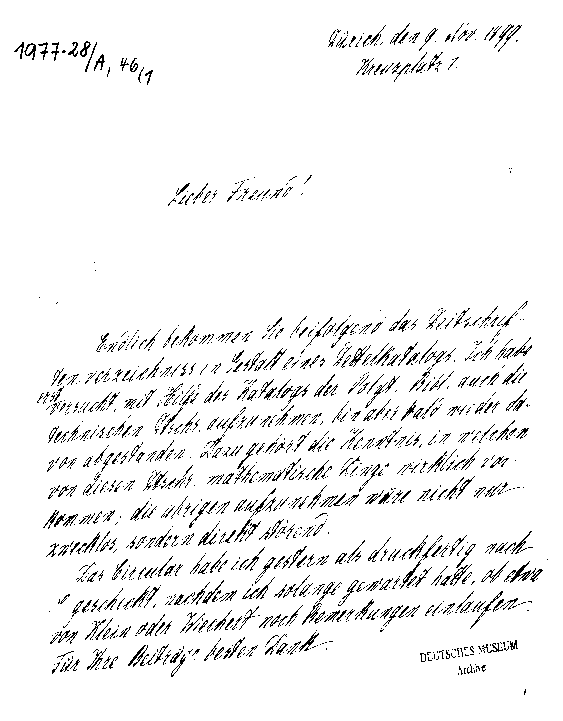 1977-28/A, 46/1
Zürich, den 9. Nov. 1899.
Kreuzplatz 1.
Lieber Freund!
Endlich bekommen Sie beifolgend das Zeitschrif-
ten verzeichniss in Gestalt eines Zettelkatalogs. Ich habe
erst versucht, mit Hilfe des Katalogs der Polyt. Bibl. auch die
technischen Ztschr. aufzunehmen, bin aber bald wieder da-
von abgestanden. Dazu gehört die Kenntnis, in welchen
von diesen Ztschr. mathematische Dinge wirklich vor-
kommen; die übrigen aufzunehmen wäre nicht nur
zwecklos, sondern direkt störend.
Das Circular habe ich gestern als druckfertig nach
geschickt, nachdem ich solange gewartet hatte, ob etwa
von Klein oder Wiechert noch Bemerkungen einlaufen.
Für Ihre Beiträge besten Dank.
DEUTSCHES MUSEUM
Archive